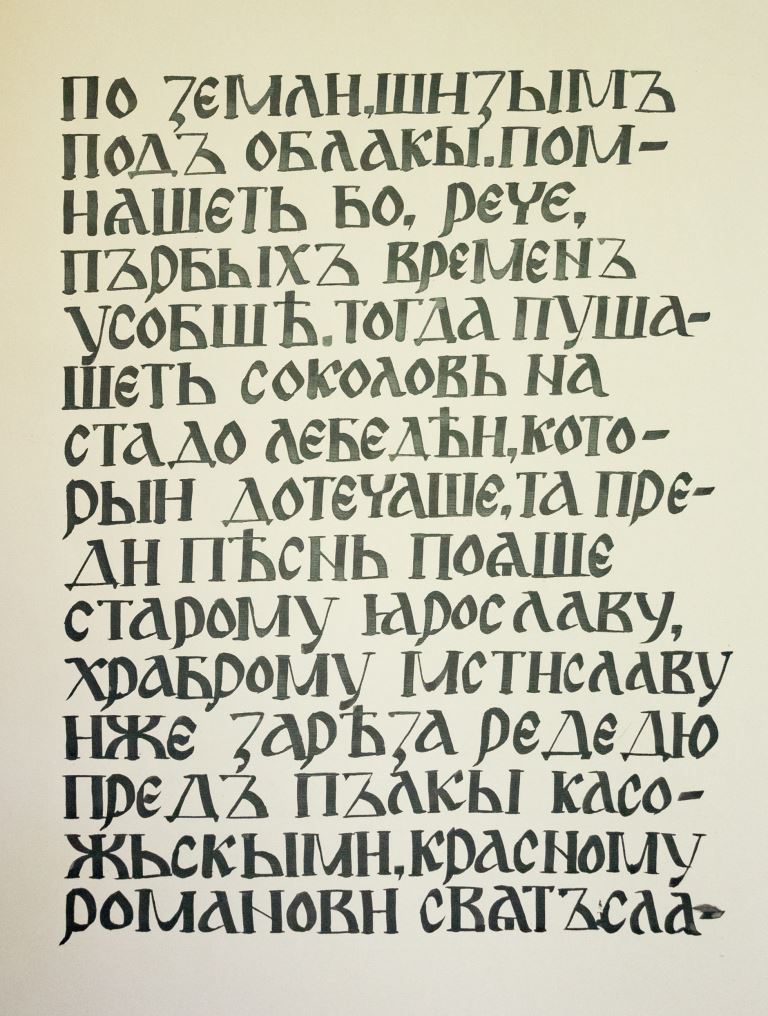 ПО ꙁЕМЛИ,ШИꙁЫМЪ
ПОДЪ ОБЛАКЫ.ПОМ-
НѦШЕТЬ БО, РЕЧЕ,
ПЪРБЫХЪ ВРЕМЕНЪ
УСОБШѢ.ТОГДА ПУША-
ШЕТЬ СОКОЛОВЬ НА
СТАДО ЛЕБЕДѢИ,КОТО-
РЫИ ДОТЕЧАШЕ,ТА ПРЕ-
ДИ ПѢСНЬ ПОѦШЕ
СТАРОМУ ꙖРОСЛАВУ,
ХРАБРОМУ МСТИСЛАВУ
ИЖЕ ꙁАРѢꙁА РЕДЕДЮ
ПРЕДЪ ПЪЛКЫ КАСО-
ЖЬСКЫМИ,КРАСНОМУ
РОМАНОВИ СВѦТЪСЛА-